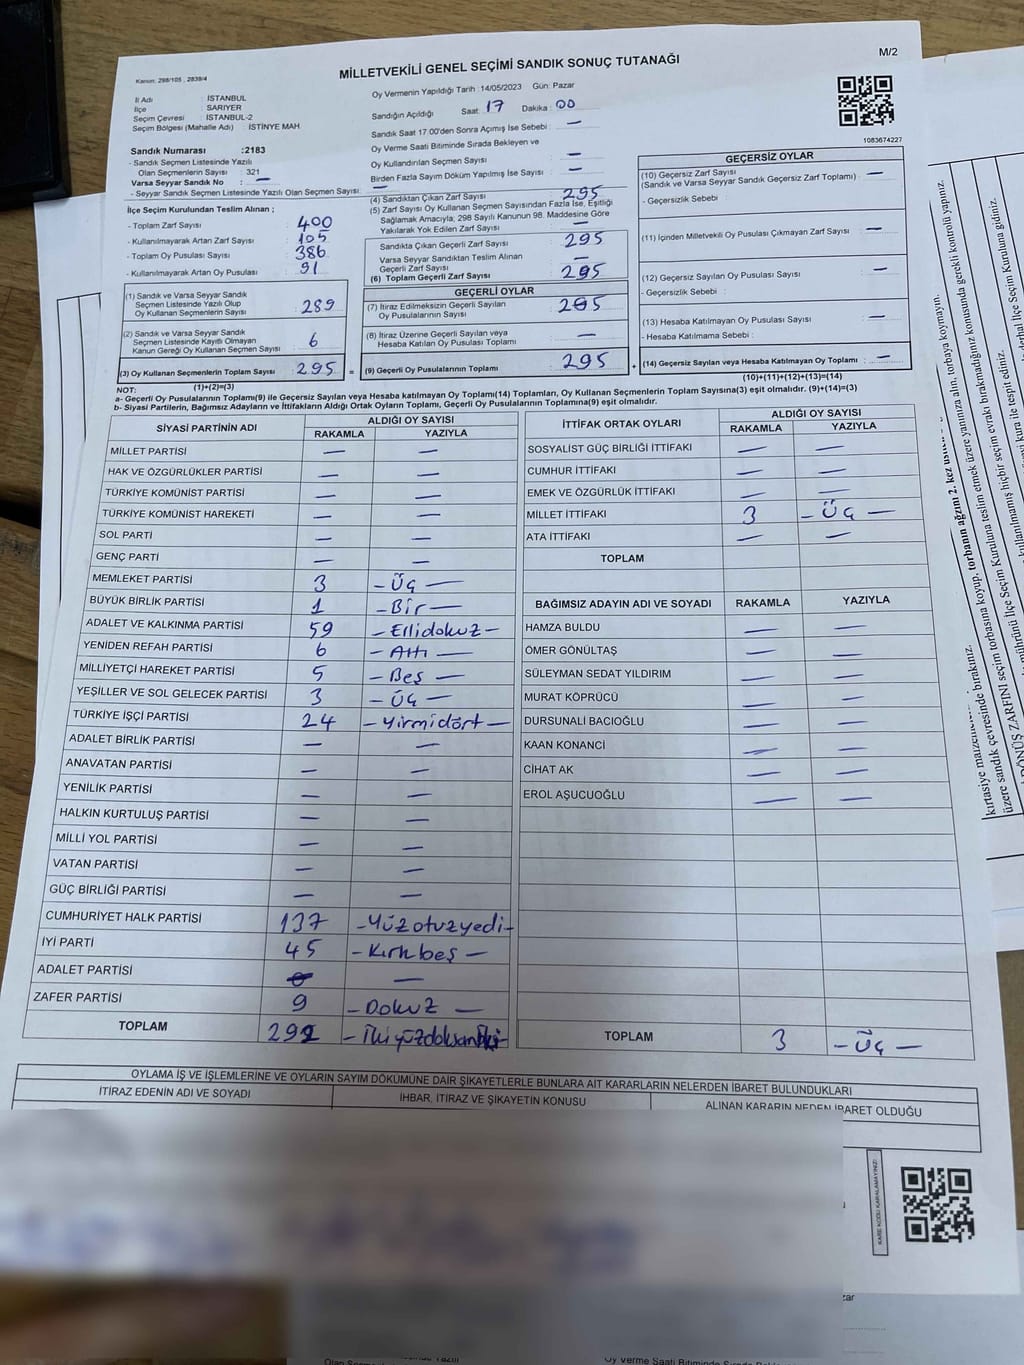 M/2
Kanun: 298/105 , 2839/4
MİLLETVEKİLİ GENEL SEÇİMİ SANDIK SONUÇ TUTANAĞI
İl Adı : İSTANBUL
İlçe : SARIYER
Seçim Çevresi : İSTANBUL-2
Seçim Bölgesi (Mahalle Adı) İSTİNYE MAH
Oy Vermenin Yapıldığı Tarih :14/05/2023 Gün: Pazar
Sandığın Açıldığı Saat: 17 Dakika : 00
Sandık Saat 17:00'den Sonra Açımış İse Sebebi : —
Oy Verme Saati Bitiminde Sırada Bekleyen ve
Oy Kullandırılan Seçmen Sayısı : —
Birden Fazla Sayım Döküm Yapılmış İse Sayısı : —
1083674227
Sandık Numarası :2183
- Sandık Seçmen Listesinde Yazılı
Olan Seçmenlerin Sayısı : 321
Varsa Seyyar Sandık No : —
- Seyyar Sandık Seçmen Listesinde Yazılı Olan Seçmen Sayısı: —
İlçe Seçim Kurulundan Teslim Alınan ;
- Toplam Zarf Sayısı : 400
- Kullanılmayarak Artan Zarf Sayısı : 105
- Toplam Oy Pusulası Sayısı : 386
- Kullanılmayarak Artan Oy Pusulası : 91
(1) Sandık ve Varsa Seyyar Sandık
Seçmen Listesinde Yazılı Olup
Oy Kullanan Seçmenlerin Sayısı : 289
(2) Sandık ve Varsa Seyyar Sandık
Seçmen Listesinde Kayıtlı Olmayan
Kanun Gereği Oy Kullanan Seçmen Sayısı : 6
(3) Oy Kullanan Seçmenlerin Toplam Sayısı : 295 =
(1)+(2)=(3)
(4) Sandıktan Çıkan Zarf Sayısı : 295
(5) Zarf Sayısı Oy Kullanan Seçmen Sayısından Fazla İse, Eşitliği
Sağlamak Amacıyla; 298 Sayılı Kanunun 98. Maddesine Göre
Yakılarak Yok Edilen Zarf Sayısı : —
Sandıkta Çıkan Geçerli Zarf Sayısı : 295
Varsa Seyyar Sandıktan Teslim Alınan
Geçerli Zarf Sayısı : —
(6) Toplam Geçerli Zarf Sayısı : 295
GEÇERLİ OYLAR
(7) İtiraz Edilmeksizin Geçerli Sayılan
Oy Pusulalarının Sayısı : 295
(8) İtiraz Üzerine Geçerli Sayılan veya
Hesaba Katılan Oy Pusulası Toplamı : —
(9) Geçerli Oy Pusulalarının Toplamı : 295 +
GEÇERSİZ OYLAR
(10) Geçersiz Zarf Sayısı
(Sandık ve Varsa Seyyar Sandık Geçersiz Zarf Toplamı) : —
- Geçersizlik Sebebi :
(11) İçinden Milletvekili Oy Pusulası Çıkmayan Zarf Sayısı : —
(12) Geçersiz Sayılan Oy Pusulası Sayısı : —
- Geçersizlik Sebebi :
(13) Hesaba Katılmayan Oy Pusulası Sayısı : —
- Hesaba Katılmama Sebebi :
(14) Geçersiz Sayılan veya Hesaba Katılmayan Oy Toplamı : —
(10)+(11)+(12)+(13)=(14)
NOT:
a- Geçerli Oy Pusulalarının Toplamı(9) ile Geçersiz Sayılan veya Hesaba katılmayan Oy Toplamı(14) Toplamları, Oy Kullanan Seçmenlerin Toplam Sayısına(3) eşit olmalıdır. (9)+(14)=(3)
b- Siyasi Partilerin, Bağımsız Adayların ve İttifakların Aldığı Ortak Oyların Toplamı, Geçerli Oy Pusulalarının Toplamına(9) eşit olmalıdır.
SİYASİ PARTİNİN ADI ALDIĞI OY SAYISI
RAKAMLA YAZIYLA
MİLLET PARTİSİ — —
HAK VE ÖZGÜRLÜKLER PARTİSİ — —
TÜRKİYE KOMÜNİST PARTİSİ — —
TÜRKİYE KOMÜNİST HAREKETİ — —
SOL PARTİ — —
GENÇ PARTİ — —
MEMLEKET PARTİSİ 3 - Üç —
BÜYÜK BİRLİK PARTİSİ 1 - Bir —
ADALET VE KALKINMA PARTİSİ 59 - Ellidokuz -
YENİDEN REFAH PARTİSİ 6 - Altı —
MİLLİYETÇİ HAREKET PARTİSİ 5 - Beş —
YEŞİLLER VE SOL GELECEK PARTİSİ 3 - Üç —
TÜRKİYE İŞÇİ PARTİSİ 24 - Yirmidört —
ADALET BİRLİK PARTİSİ — —
ANAVATAN PARTİSİ — —
YENİLİK PARTİSİ — —
HALKIN KURTULUŞ PARTİSİ — —
MİLLİ YOL PARTİSİ — —
VATAN PARTİSİ — —
GÜÇ BİRLİĞİ PARTİSİ — —
CUMHURİYET HALK PARTİSİ 137 - Yüzotuzyedi -
İYİ PARTİ 45 - Kırkbeş —
ADALET PARTİSİ — —
ZAFER PARTİSİ 9 - Dokuz —
TOPLAM 292 - İkiyüzdoksaniki -
İTTİFAK ORTAK OYLARI ALDIĞI OY SAYISI
RAKAMLA YAZIYLA
SOSYALİST GÜÇ BİRLİĞİ İTTİFAKI — —
CUMHUR İTTİFAKI — —
EMEK VE ÖZGÜRLÜK İTTİFAKI — —
MİLLET İTTİFAKI 3 - Üç —
ATA İTTİFAKI — —
TOPLAM
BAĞIMSIZ ADAYIN ADI VE SOYADI RAKAMLA YAZIYLA
HAMZA BULDU — —
ÖMER GÖNÜLTAŞ — —
SÜLEYMAN SEDAT YILDIRIM — —
MURAT KÖPRÜCÜ — —
DURSUNALİ BACIOĞLU — —
KAAN KONANCİ — —
CİHAT AK — —
EROL AŞUCUOĞLU — —
TOPLAM 3 - Üç —
OYLAMA İŞ VE İŞLEMLERİNE VE OYLARIN SAYIM DÖKÜMÜNE DAİR ŞİKAYETLERLE BUNLARA AİT KARARLARIN NELERDEN İBARET BULUNDUKLARI
İTİRAZ EDENİN ADI VE SOYADI İHBAR, İTİRAZ VE ŞİKAYETİN KONUSU ALINAN KARARIN NEDEN İBARET OLDUĞU
KARE KODU KARALAMAYINIZ!